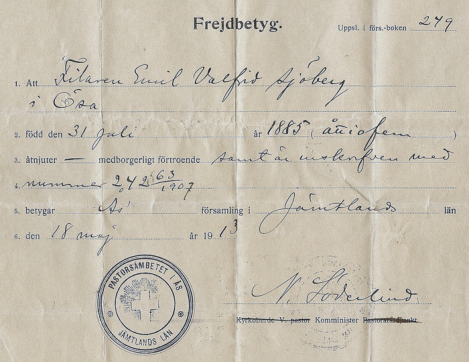 Frejdbetyg.
Uppsl. i förs.-boken 249
1. Att Filaren Emil Valfrid Sjöberg
i Ösa
2. född den 31 Juli år 1885 (åttiofem)
3. åtnjuter — medborgerligt förtroende samt är inskrifven med
4. nummer 2, 42 63/1907
5. betygar Ås församling i Jämtlands län
6. den 18 maj år 1913
PASTORSÄMBETET I ÅS
JÄMTLANDS LÄN
N. Söderlind
Kyrkoherde V. pastor Komminister Pastoratsadjunkt.